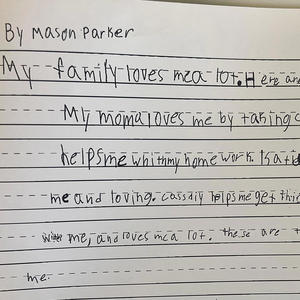 By Mason Parker
My family loves me a lot. Here are
My mom a loves me by taking c
helps me whith my home work. Is a
me and loving. Cassdiy helps me get
with me, and loves me a lot. these are t
me.